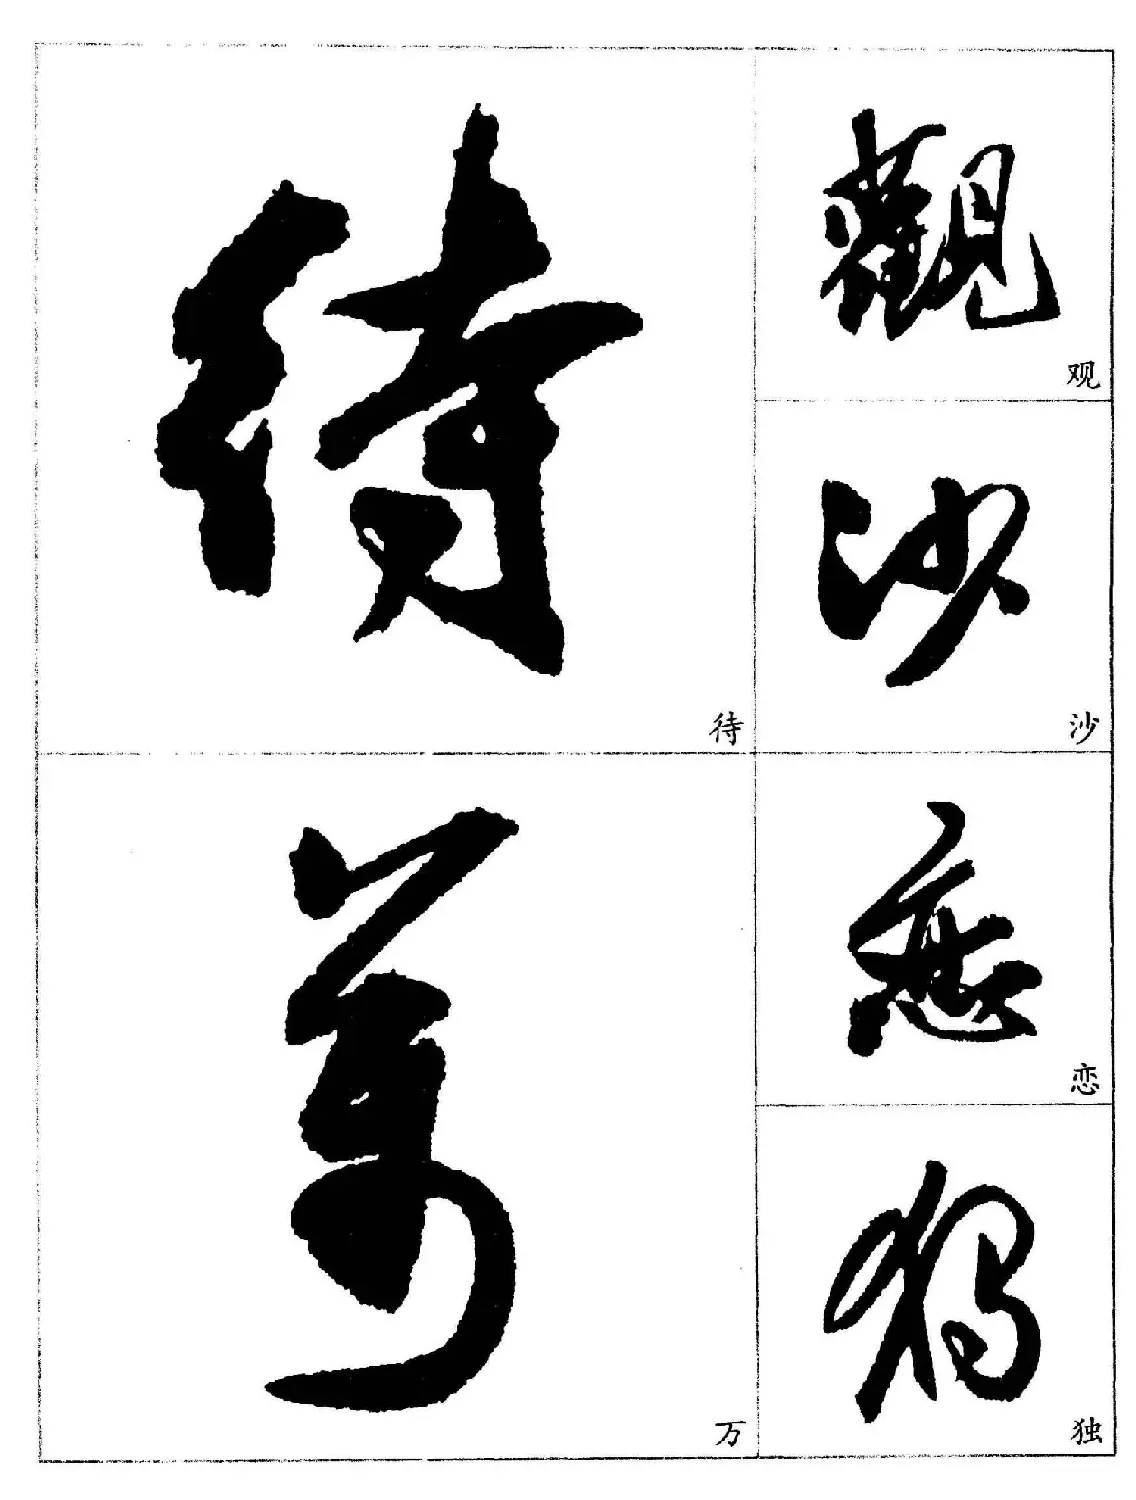 待
待
萬
万
觀
观
沙
沙
戀
恋
獨
独